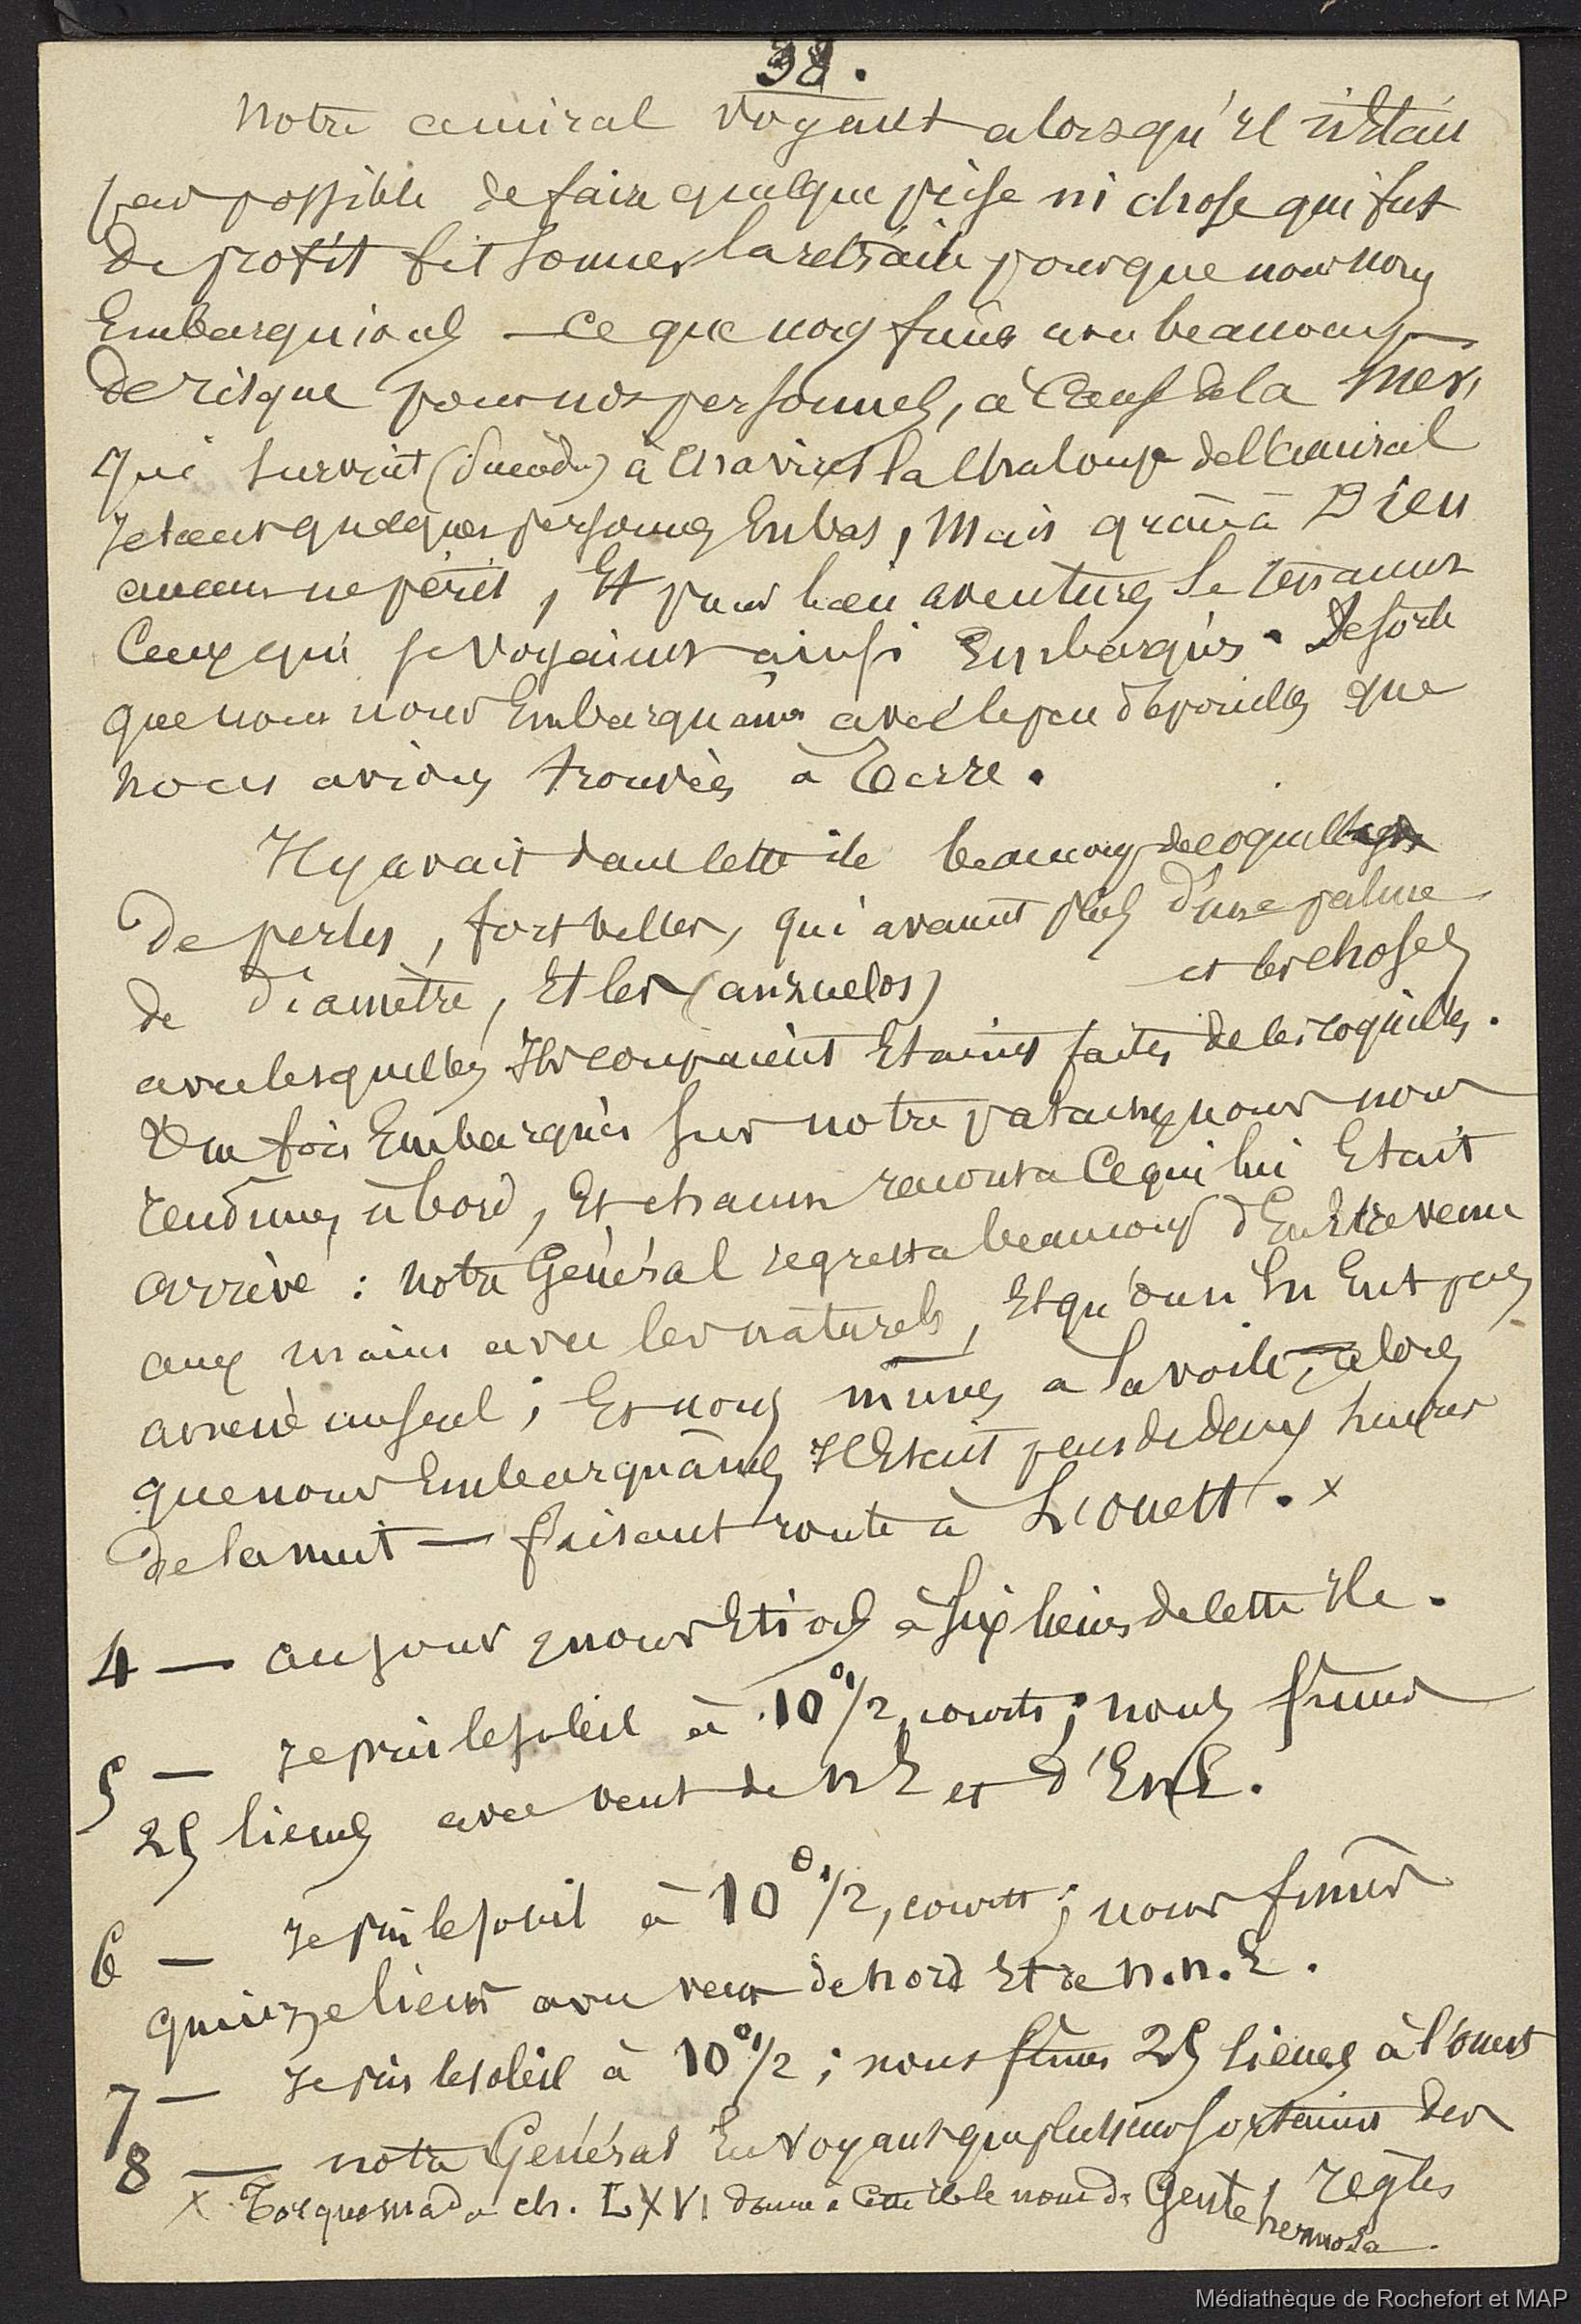 38.
Notre amiral voyant alors qu'il n'était
pas possible de faire quelque prise ni chose qui fut
de profit fit sonner la retraite pour que nous nous
Embarquions — ce que nous fimes avec beaucoup
de risque pour nos personnes, à cause de la mer,
qui survint (sucedio) à chavirer la chaloupe de l'amiral
jetant quelques personnes En bas, Mais grâce à Dieu
aucun ne périt, Et pour bien aventurés se tenaient
Ceux qui se voyaient ainsi Embarqués. De sorte
que nous nous Embarquâmes avec le peu dépouilles que
nous avions trouvées à Terre.
Il y avait dans cette ile beaucoup de coquilles
de perles, fort belles, qui avaient plus d'une palme
de diamètre, Et les (anzuelos) et les choses
avec lesquelles Ils coupaient Etaient faites de les coquilles.
Une fois Embarqués sur notre patache nous nous
rendimes à bord, Et chacun raconta Ce qui lui Etait
arrivé : notre Général regretta beaucoup d'En Etre venu
aux mains avec les naturels, Et qu'on n'En Eut pas
amené un seul ; Et nous mimes à la voile, alors
que nous Embarquâmes Il Etait plus de deux heures
de la nuit — faisant route à L'ouest. x
4 — au jour nous Etions à six lieues de cette Ile.
5 — Je pris le soleil à 10° 1/2, courts ; nous fimes
25 lieues avec vent de NE et d'ENE.
6 — Je pris le soleil à 10° 1/2, courts ; nous fimes
quinze lieues avec vent de nord Et de N.N.E.
7 — Je pris le soleil à 10° 1/2 ; nous fimes 25 lieues à l'ouest
8 — notre Général En voyant que plusieurs sortaient des
règles
x Torquemada ch. LXVI donne à Cette ile le nom de Gente hermosa.
Médiathèque de Rochefort et MAP